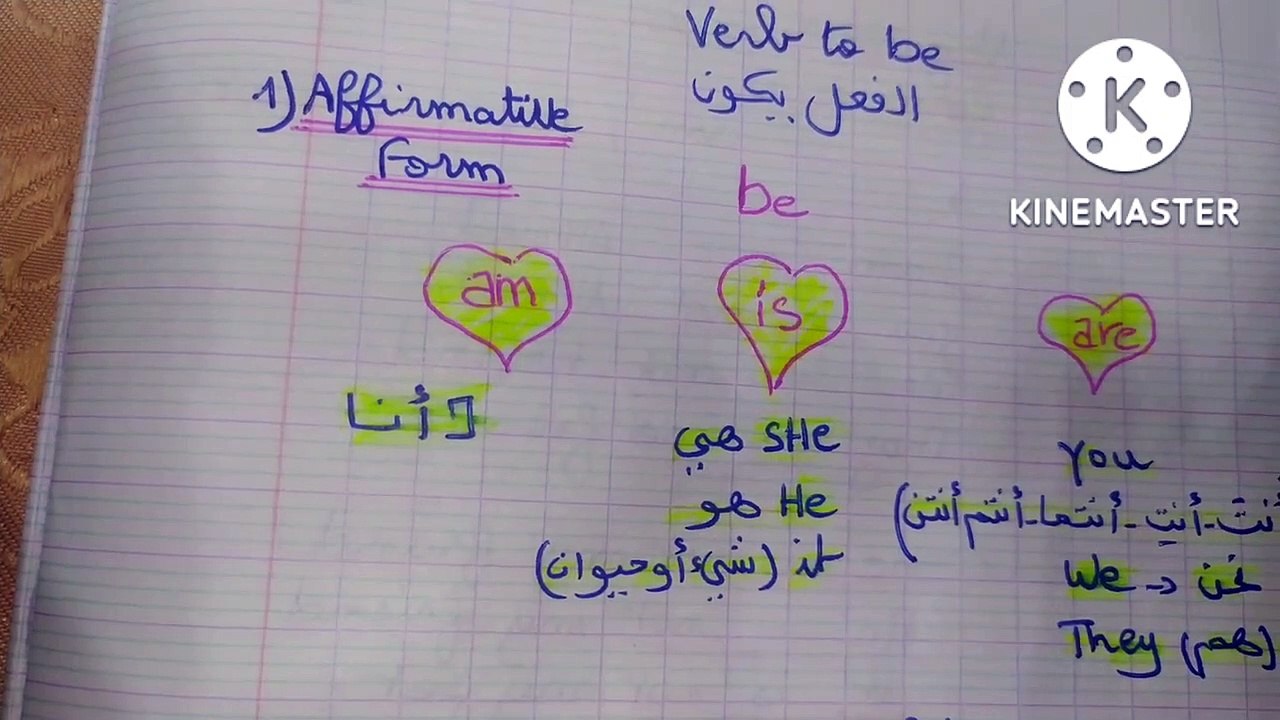 Verb to be
الفعل يكون
1) Affirmative
Form
be
am
is
are
I أنا
SHe هي
He هو
it (شيء أو حيوان)
you
أنتَ - أنتِ - أنتما - أنتم أنتن)
We → نحن
They (هم)
K
KINEMASTER